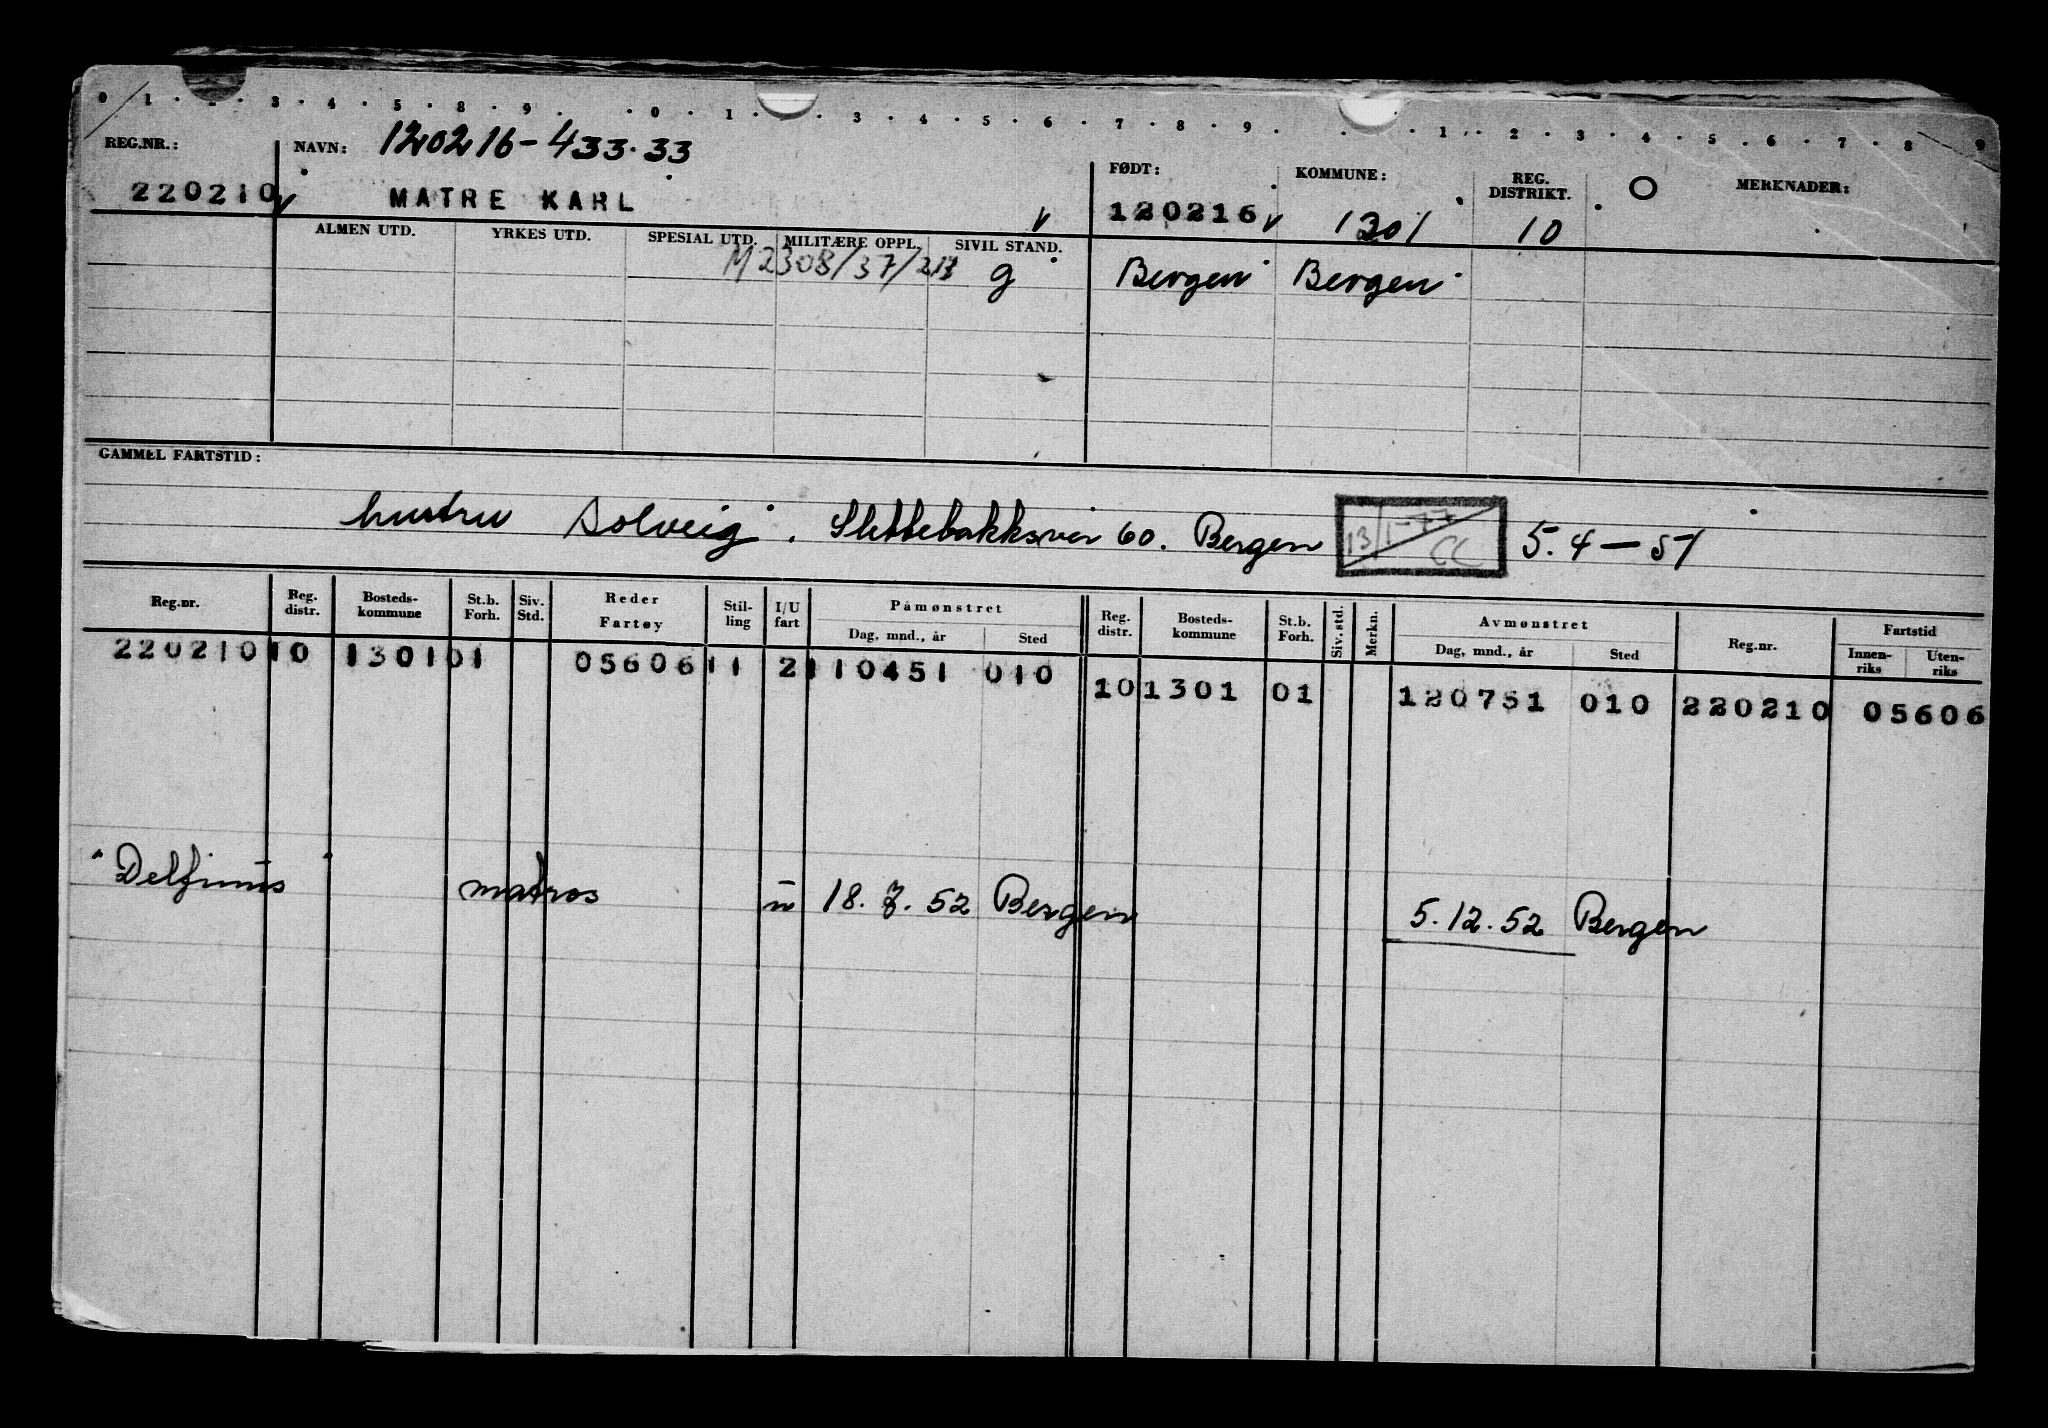 0 1 . 2 . 3 . 4 . 5 . 8 . 9 . . 0 . 1 . . 3 . 4 . 5 . 6 . 7 . 8 . 9 . . . 1 . 2 . 3 . 4 . 5 . 6 . 7 . 8 . 9
REG.NR.: NAVN: 120216-433.33 FØDT: KOMMUNE: REG. DISTRIKT. O MERKNADER:
220210 v MATRE KARL v 120216 v 1301 10
ALMEN UTD. YRKES UTD. SPESIAL UTD. MILITÆRE OPPL. SIVIL STAND.
M2308/37/213 g Bergen Bergen
GAMMEL FARTSTID:
hustru Solveig. Slettebakksvei 60. Bergen 13/1-77 CC 5.4-51
Reg.nr. Reg. distr. Bosteds-kommune St.b. Forh. Siv. Std. Reder Fartøy Stil-ling I/U fart Påmønstret Reg. distr. Bosteds-kommune St.b. Forh. Siv. std. Merkn. Avmønstret Reg.nr. Fartstid
Dag, mnd., år Sted Dag, mnd., år Sted Innen-riks Uten-riks
220210 10 1301 01 05606 11 2 110451 010 10 1301 01 120751 010 220210 05606
"Delfinus" matros u 18.7.52 Bergen 5.12.52 Bergen